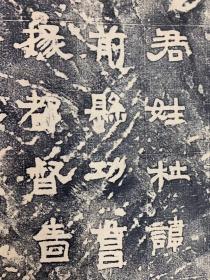 君姓杜諱
前縣功曹
掾都督